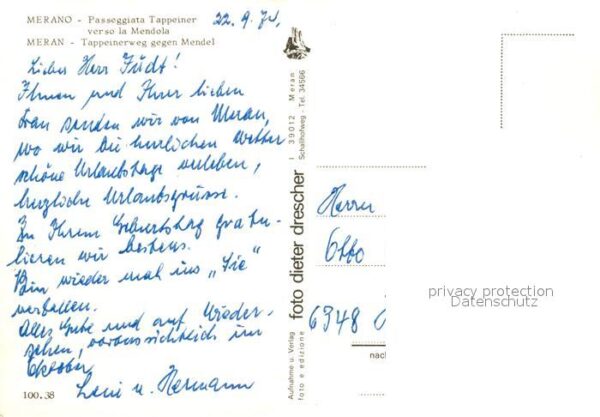 MERANO - Passeggiata Tappeiner
verso la Mendola
MERAN - Tappeinerweg gegen Mendel
22.9.74.
Lieber Herr Füdt!
Ihnen und Ihrer lieben
Frau senden wir von Meran,
wo wir bei herrlichem Wetter
schöne Urlaubstage verleben,
herzliche Urlaubsgrüsse.
Zu Ihrem Geburtstag gratu-
lieren wir bestens.
Bin wieder mal ins "Sie"
verfallen.
Alles Gute und auf Wieder-
sehen, voraussichtlich im
Oktober
Leni u. Hermann
100.38
Aufnahme u. Verlag
foto e edizione
foto dieter drescher
I 39012 Meran
Schallhofweg Tel. 34506
Herrn
Otto
6348
nach
privacy protection
Datenschutz